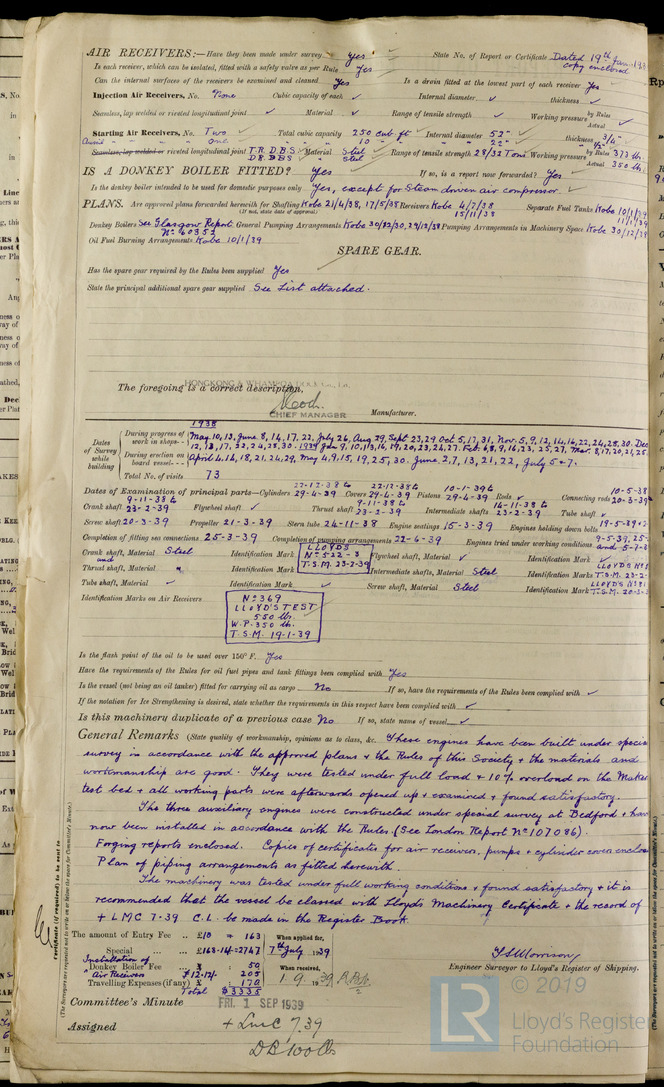 AIR RECEIVERS:—Have they been made under survey Yes State No. of Report or Certificate Dated 19th Jan. copy enclosed
Is each receiver, which can be isolated, fitted with a safety valve as per Rule Yes
Can the internal surfaces of the receivers be examined and cleaned Yes Is a drain fitted at the lowest part of each receiver Yes
Injection Air Receivers, No. None Cubic capacity of each ✓ Internal diameter ✓ thickness ✓
Seamless, lap welded or riveted longitudinal joint ✓ Material ✓ Range of tensile strength ✓ Working pressure by Rules Actual ✓
Starting Air Receivers, No. Two Total cubic capacity 250 cub ft Internal diameter 52" thickness 3/4"
" " " one " " 10 " " " 22" " 1/2"
Seamless, lap welded or riveted longitudinal joint T.R.D.B.S. Material Steel Range of tensile strength 28/32 Tons Working pressure by Rules 373 lb
D.R.D.B.S Steel Actual 350 lb
IS A DONKEY BOILER FITTED? Yes If so, is a report now forwarded? Yes
Is the donkey boiler intended to be used for domestic purposes only Yes, except for Steam driven air compressor ✓
PLANS. Are approved plans forwarded herewith for Shafting Kobe 21/4/38, 17/5/38 Receivers Kobe 4/7/38 Separate Fuel Tanks Kobe 10/1/39
(If not, state date of approval) 15/11/38 11/1/39
Donkey Boilers See Glasgow Report General Pumping Arrangements Kobe 30/12/30, 29/12/38 Pumping Arrangements in Machinery Space Kobe 30/12/38
No 60353
Oil Fuel Burning Arrangements Kobe 10/1/39
SPARE GEAR.
Has the spare gear required by the Rules been supplied Yes
State the principal additional spare gear supplied See List attached.
HONGKONG & WHAMPOA DOCK Co., Ltd.
The foregoing is a correct description,
CHIEF MANAGER Manufacturer.
1938
Dates of Survey while building
During progress of work in shops - - May 10, 13, June 8, 14, 17, 22, July 26, Aug. 29, Sept 23, 29 Oct 5, 17, 31, Nov. 5, 9, 12, 14, 16, 22, 24, 28, 30. Dec
12, 13, 17, 22, 24, 28, 30. 1939 Jan 9, 10, 11, 13, 16, 19, 20, 23, 24, 27. Feb. 6, 8, 9, 16, 23, 25, 27, Mar. 8, 17, 20, 21, 25
During erection on board vessel - - - April 4, 14, 18, 21, 24, 29, May 4, 9, 15, 19, 25, 30. June 2, 7, 13, 21, 22, July 5-7.
Total No. of visits 73
Dates of Examination of principal parts—Cylinders 27-12-38 to 29-4-39 Covers 22-12-38 to 29-4-39 Pistons 10-1-39 to 29-4-39 Rods ✓ Connecting rods 10-5-38 20-3-39
Crank shaft 9-11-38 to 23-2-39 Flywheel shaft ✓ Thrust shaft 9-11-38 to 23-2-39 Intermediate shafts 14-11-38 to 23-2-39 Tube shaft ✓
Screw shaft 20-3-39 Propeller 21-3-39 Stern tube 24-11-38 Engine seatings 15-3-39 Engines holding down bolts 19-5-39
Completion of fitting sea connections 25-3-39 Completion of pumping arrangements 22-6-39 Engines tried under working conditions 9-5-39, 25- and 5-7-3
Crank shaft, Material Steel Identification Mark LLOYDS No 522-3 T.S.M. 23-2-39 Flywheel shaft, Material ✓ Identification Mark ✓
and
Thrust shaft, Material " Identification Mark Intermediate shafts, Material Steel Identification Marks LLOYD'S T.S.M. 23-2-
Tube shaft, Material ✓ Identification Mark ✓ Screw shaft, Material Steel Identification Mark LLOYD'S T.S.M. 20-3-3
Identification Marks on Air Receivers
No 369
LLOYD'S TEST
550 lb.
W.P. 350 lb.
T.S.M. 19-1-39
Is the flash point of the oil to be used over 150° F. Yes
Have the requirements of the Rules for oil fuel pipes and tank fittings been complied with Yes
Is the vessel (not being an oil tanker) fitted for carrying oil as cargo No If so, have the requirements of the Rules been complied with ✓
If the notation for Ice Strengthening is desired, state whether the requirements in this respect have been complied with ✓
Is this machinery duplicate of a previous case No If so, state name of vessel ✓
General Remarks (State quality of workmanship, opinions as to class, &c. These engines have been built under special
survey in accordance with the approved plans & the Rules of this Society & the materials and
workmanship are good. They were tested under full load & 10% overload on the Makers
test bed & all working parts were afterwards opened up & examined & found satisfactory.
The three auxiliary engines were constructed under special survey at Bedford & have
now been installed in accordance with the Rules. (See London Report No 107086).
Forging reports enclosed. Copies of certificates for air receivers, pumps & cylinder covers enclosed
Plan of piping arrangements as fitted herewith.
The machinery was tested under full working conditions & found satisfactory & it is
recommended that the vessel be classed with Lloyds Machinery Certificate & the record of
+ LMC 7-39 C.L. be made in the Register Book.
The amount of Entry Fee .. £10 = 163 When applied for,
Special ... £168-14 = 2747 7th July 1939
Installation of
Donkey Boiler Fee .. £ : 50 When received,
Air Receivers £12-12- 205
Travelling Expenses (if any) £ : 170 1. 9. 1939
Total $3335
Engineer Surveyor to Lloyd's Register of Shipping.
Committee's Minute FRI. 1 SEP 1939
Assigned + LMC 7.39
DB 100 lb
Certificate (if required) to be sent to
(The Surveyors are requested not to write on or below the space for Committee's Minute.)
© 2019
LR
Lloyd's Register
Foundation